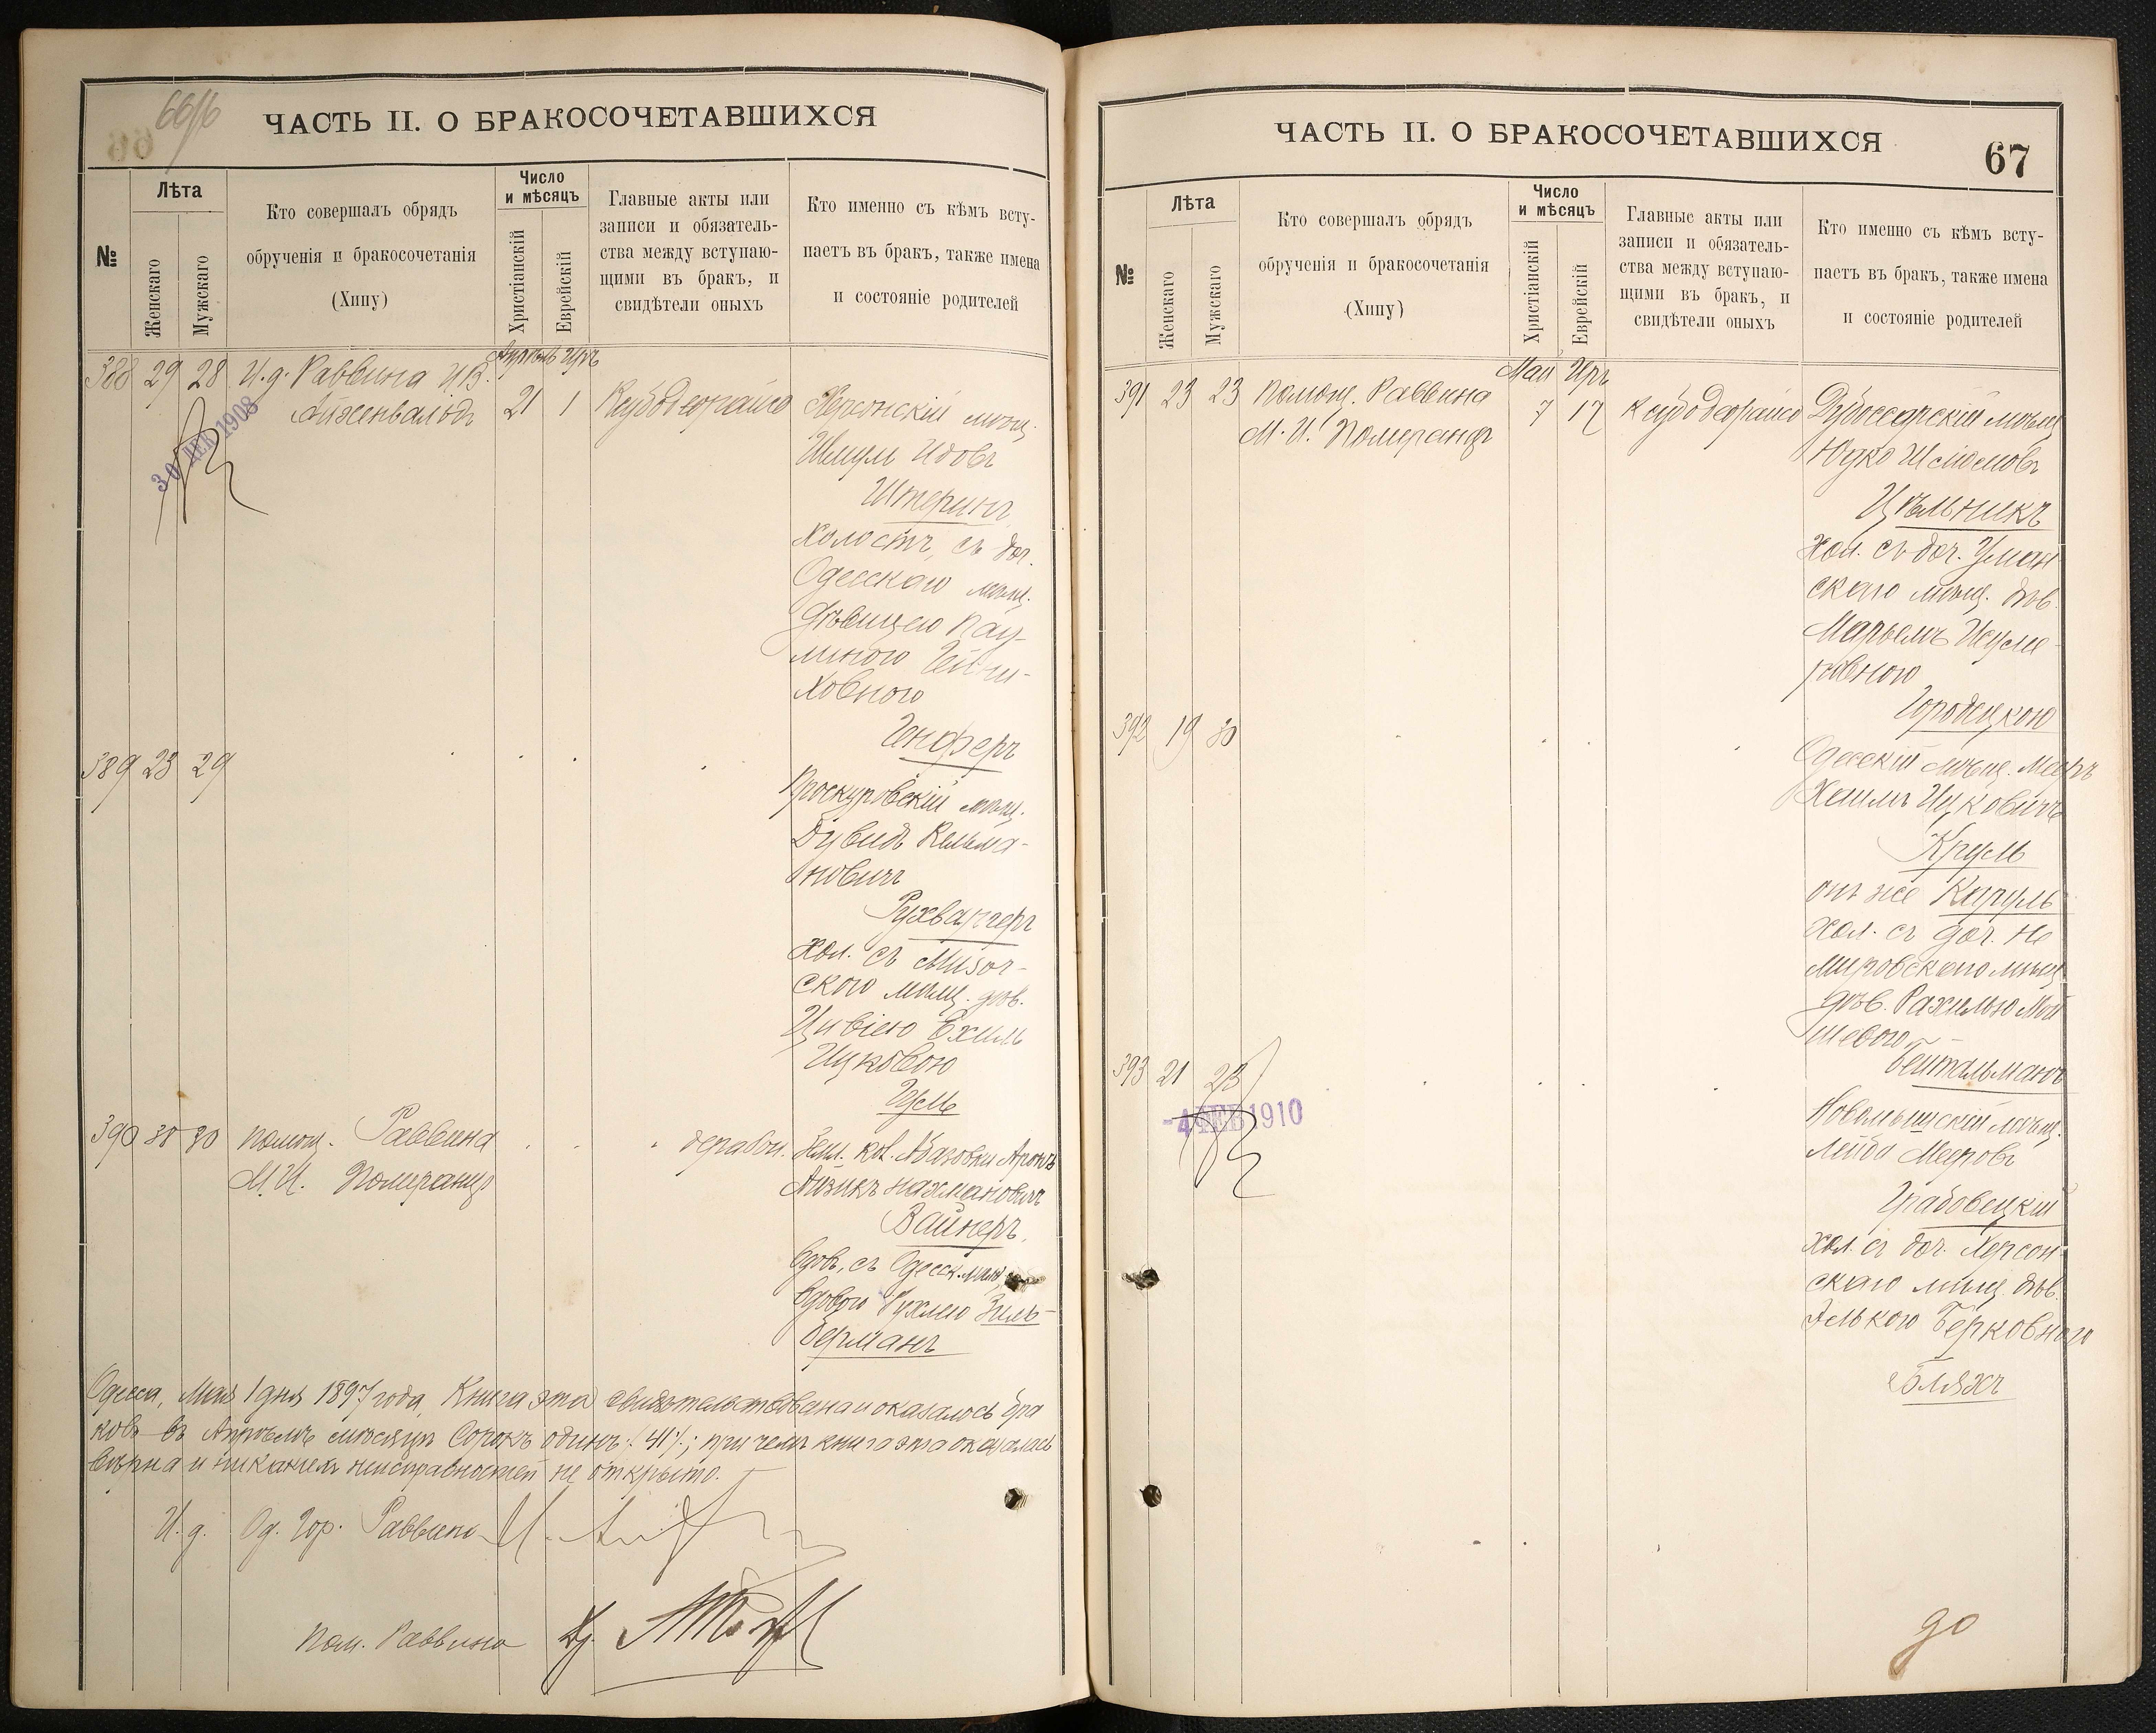 66/б
ЧАСТЬ II. О БРАКОСОЧЕТАВШИХСЯ
№
Лѣта
Женскаго
Мужскаго
Кто совершалъ обрядъ
обрученія и бракосочетанія
(Хипу)
Число
и мѣсяцъ
Христіанскій
Еврейскій
Главные акты или
записи и обязатель-
ства между вступаю-
щими въ бракъ, и
свидѣтели оныхъ
Кто именно съ кѣмъ всту-
паетъ въ бракъ, также имена
и состояніе родителей
Апрѣль Иръ
388 29 28 И.д. Раввина И.В.
Айженвальдъ
21 1
30 ДЕК 1908
Херсонскій мѣщ.
Шмул Идовъ
Штеринъ
холостъ, съ доч.
Одесскаго мѣщ.
дѣвицею Пау-
линою Гейни-
ховною
Генферъ
389 23 29
Проскуровскій мѣщ.
Дувидъ Кельма-
новичъ
Рухваргеръ
хол. съ Мизоч-
ского мѣщ. дѣв.
Цивіею Ехиль
Ицковою
Гусь
390 38 30 Помощ. Раввина
М.И. Померанцъ
Земл. кол. Абазовки Аронъ
Айзикъ Нахмановичъ
Вайнеръ,
вдов, съ Одесск. мѣщ.
вдовою Рухлею Зиль-
берманъ
Одесса, Мая 1 дня 1897 года, Книга эта свидѣтельствована и оказалось бра
ковъ въ Апрѣлѣ мѣсяцѣ Сорокъ одинъ (41); при чемъ книга эта оказалась
вѣрна и никакихъ неисправностей не открыто.
И.д. Од. Гор. Раввина
Пом. Раввина
ЧАСТЬ II. О БРАКОСОЧЕТАВШИХСЯ
67
№
Лѣта
Женскаго
Мужскаго
Кто совершалъ обрядъ
обрученія и бракосочетанія
(Хипу)
Число
и мѣсяцъ
Христіанскій
Еврейскій
Главные акты или
записи и обязатель-
ства между вступаю-
щими въ бракъ, и
свидѣтели оныхъ
Кто именно съ кѣмъ всту-
паетъ въ бракъ, также имена
и состояніе родителей
Май Иръ
391 23 23 Помощ. Раввина
М.И. Померанцъ
7 17
Дубоссарскій мѣщ
Юдко Шлiомовъ
Цѣльникъ
хол. съ доч. Уман
скаго мѣщ. дѣв.
Марьемъ Иусле
ровною
Городецкою
392 19 30
Одесскій мѣщ. Мееръ
Хаимъ Ицковичъ
Круль
онъ же Кируль
хол. съ доч. Не
мировскаго мѣщ
дѣв. Рахилью Мой
шевою
Бейтельманъ
393 21 23
-4 ФЕВ 1910
мѣщ.
Лейба Мееровъ
Грабовецкій
хол. съ доч. Херсон
скаго мѣщ. дѣв.
Элькою Берковною
Бляхъ
до